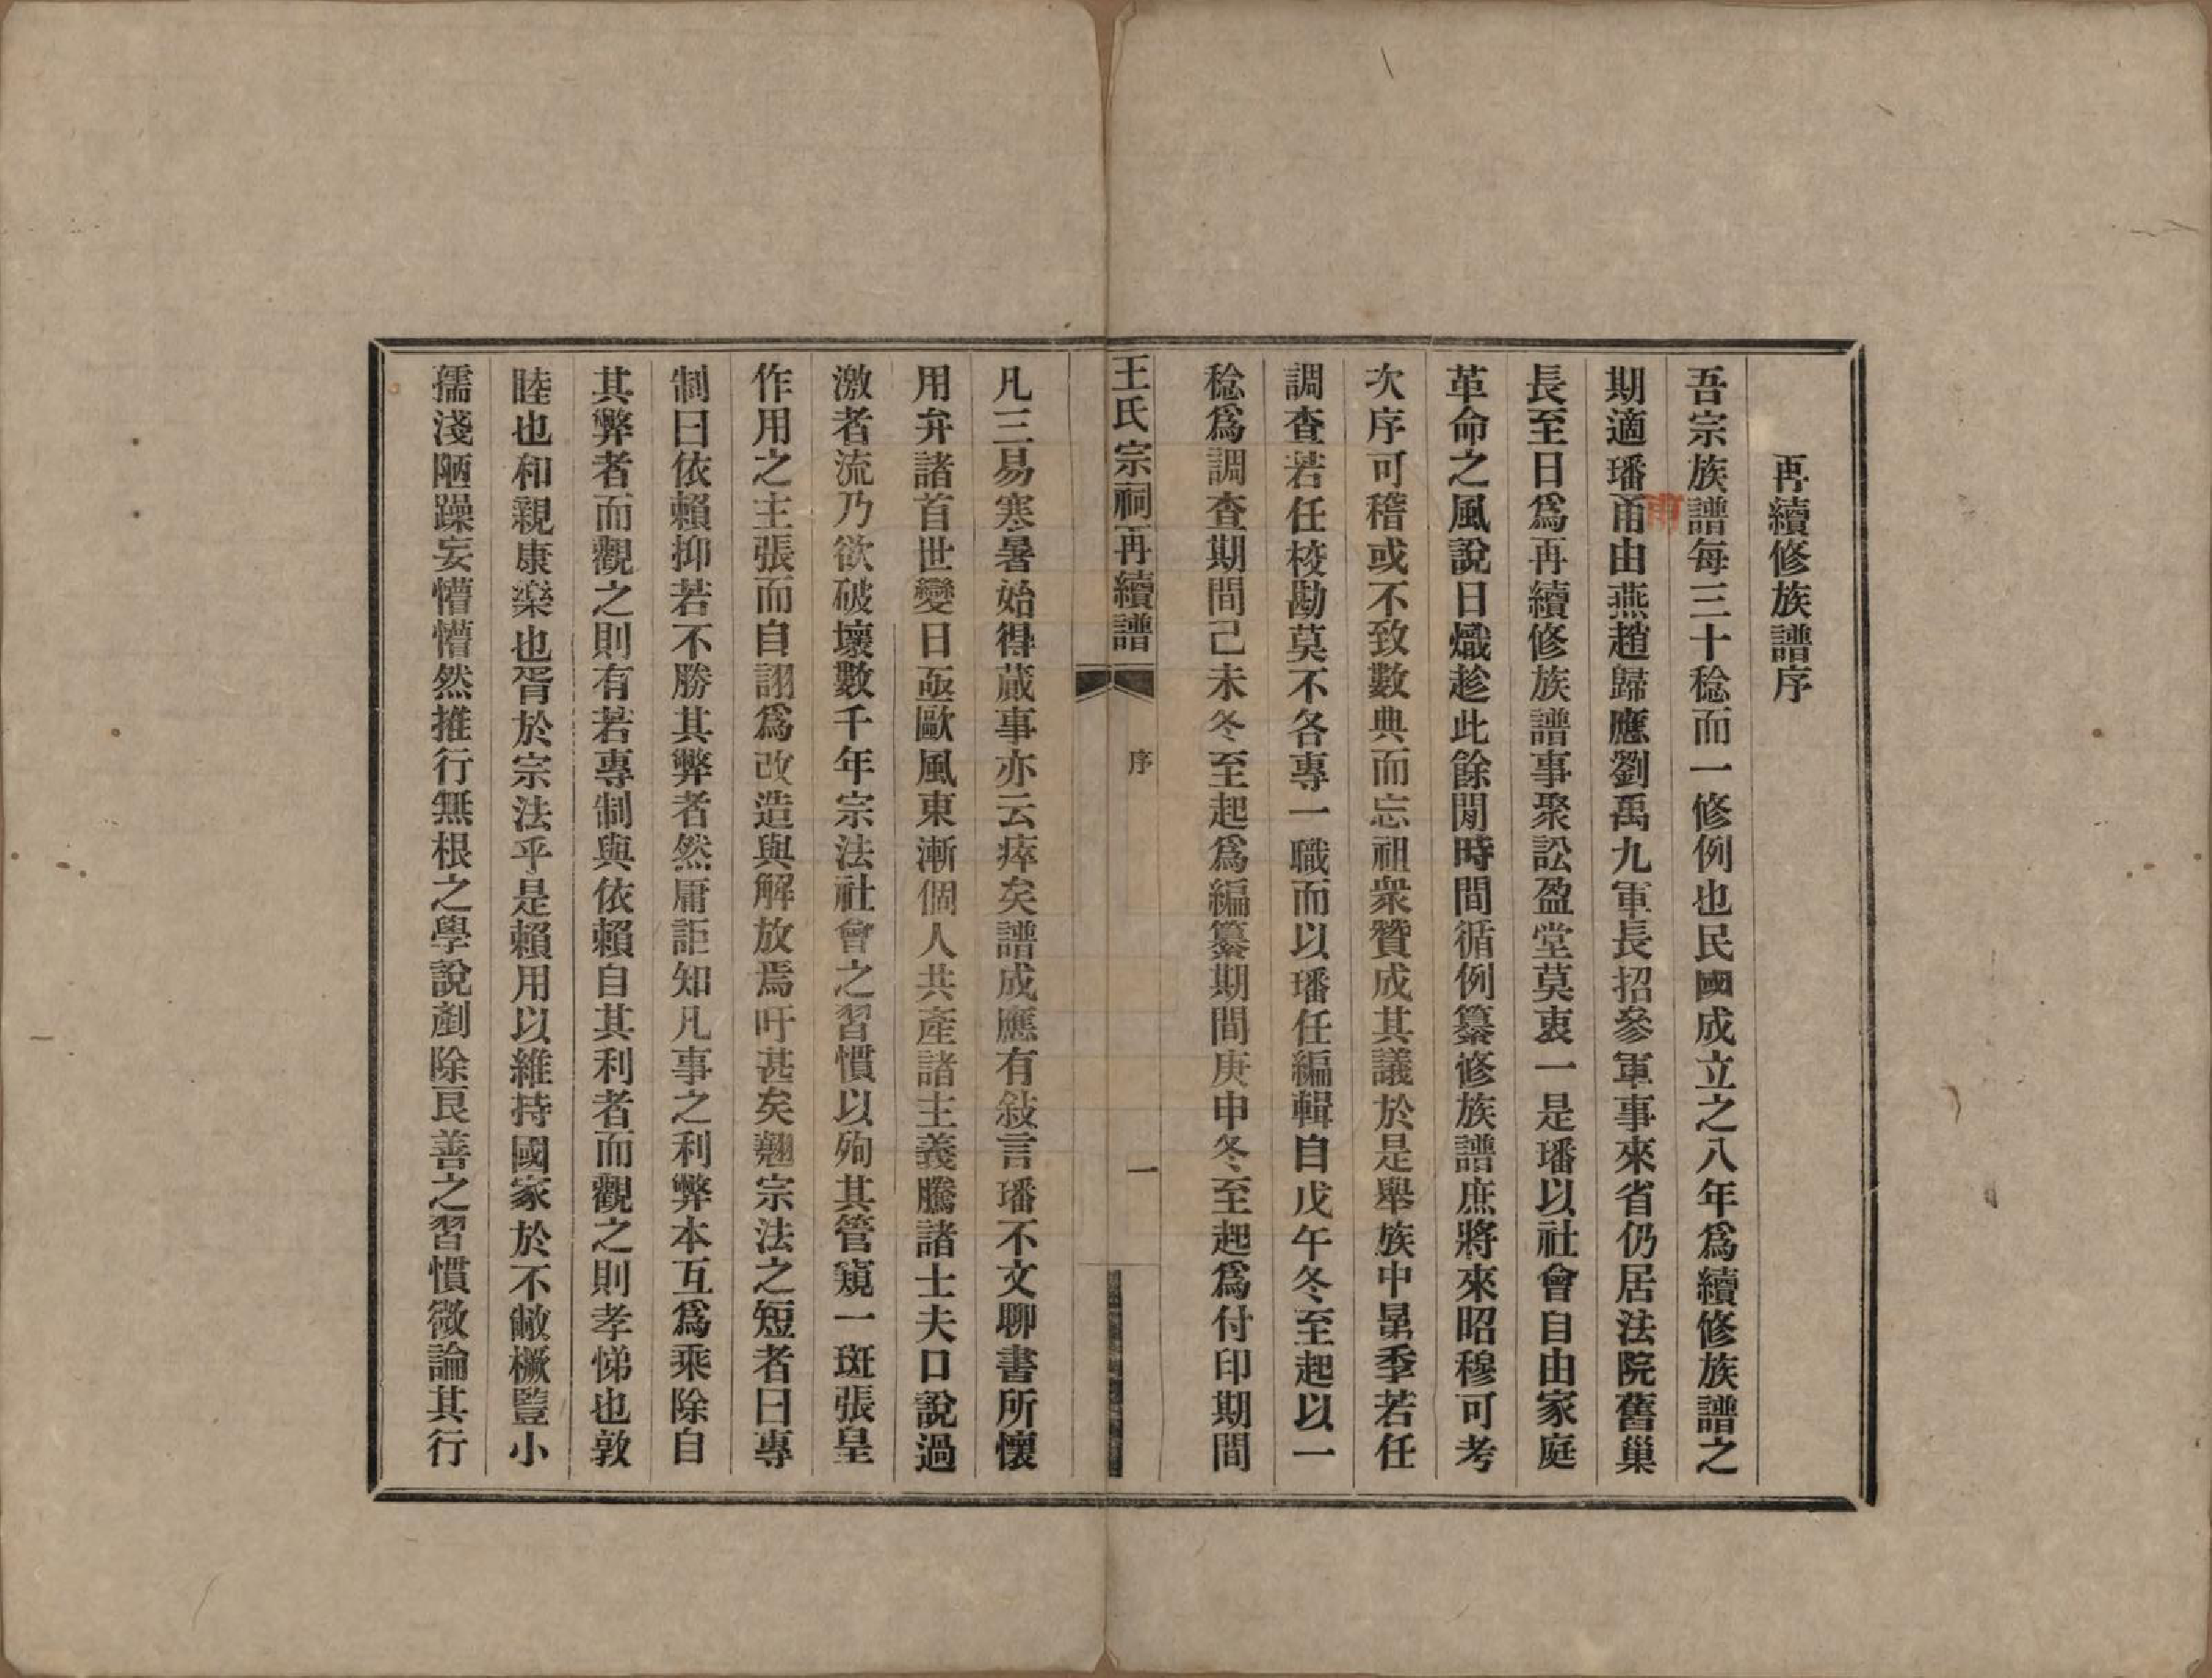 再續修族譜序
吾宗族譜每三十稔而一修例也民國成立之八年爲續修族譜之
期適璠甬由燕趙歸應劉禹九軍長招參軍事來省仍居法院舊巢
長至日爲再續修族譜事聚訟盈堂莫衷一是璠以社會自由家庭
革命之風說日熾趁此餘閒時間循例纂修族譜庶將來昭穆可考
次序可稽或不致數典而忘祖衆贊成其議於是舉族中昆季若任
調查若任校勘莫不各專一職而以璠任編輯自戊午冬至起以一
稔爲調查期間己未冬至起爲編纂期間庚申冬至起爲付印期間
王氏宗祠再續譜
序
一
凡三易寒暑始得蕆事亦云瘁矣譜成應有敍言璠不文聊書所懷
用弁諸首世變日亟歐風東漸個人共產諸主義騰諸士夫口說過
激者流乃欲破壞數千年宗法社會之習慣以殉其管窺一斑張皇
作用之主張而自詡爲改造與解放焉吁甚矣翹宗法之短者曰專
制曰依賴抑若不勝其弊者然庸詎知凡事之利弊本互爲乘除自
其弊者而觀之則有若專制與依賴自其利者而觀之則孝悌也敦
睦也和親康樂也胥於宗法乎是賴用以維持國家於不敝橛豎小
孺淺陋躁妄懵懵然推行無根之學說剷除良善之習慣微論其行